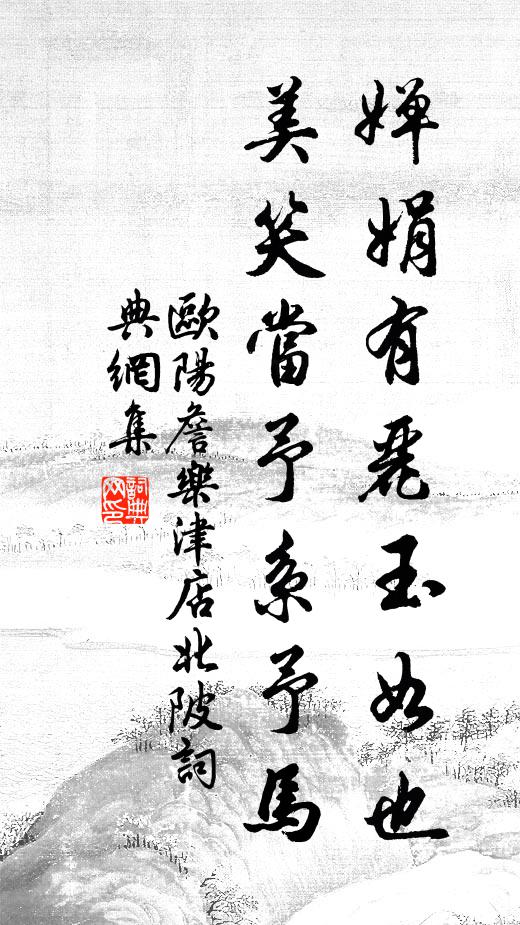 嬋娟有麗玉如也
美笑當予系予馬
歐陽詹樂津店北陂詞
典網集
詞典網印